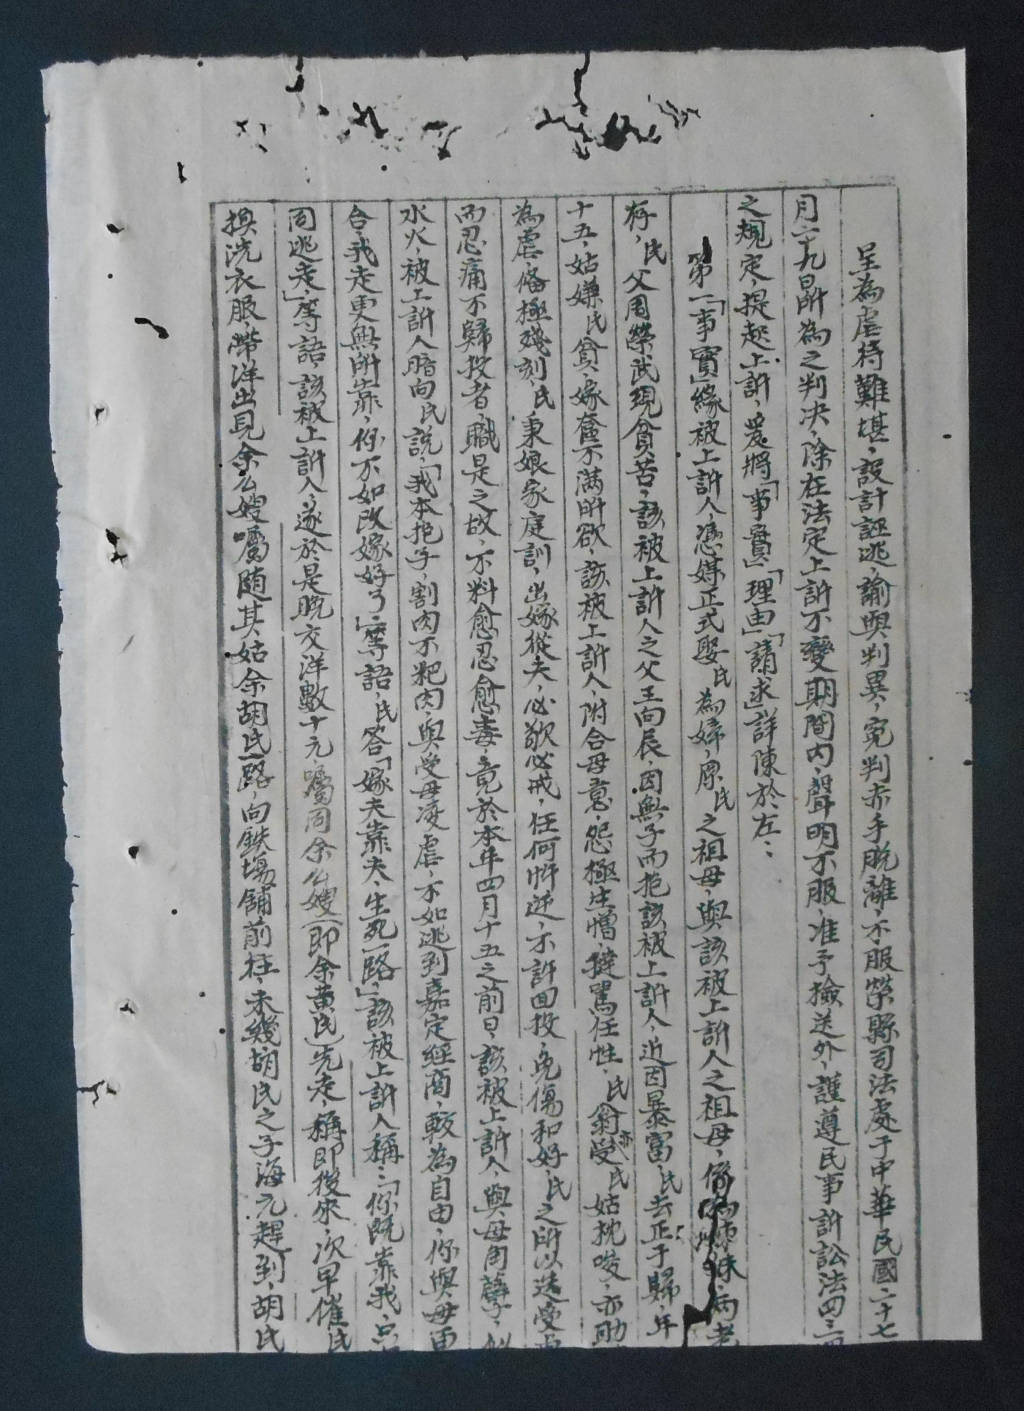 呈為虐待難堪，設計誣逃，諭與判異，冤判赤手脫離，不服榮縣司法處于中華民國二十七
月二十九日所為之判决，除在法定上訴不變期間内，聲明不服，准予檢送外，謹遵民事訴訟法四三四
之規定，提起上訴，爰將「事實」「理由」「請求」詳陳於左：
第一「事實」緣被上訴人，憑媒正式娶氏為婦，原氏之祖母，與該被上訴人之祖母，係姊妹，両老
存，氏父周榮武現貧苦，該被上訴人之父王向辰，因無子而抱該被上訴人，近因暴富，氏去正于歸，年
十五，姑嫌氏貧，嫁奩不滿所欲，該被上訴人，附合母意，怨極生憎，撻罵任性，氏翁亦受氏姑枕唆，亦助
為虐，俻極殘刻，氏秉娘家庭訓，出嫁從夫，必敬必戒，任何忤逆，不許回投，免傷和好，氏之所以迭受虐
而忍痛不歸投者，職是之故，不料愈忍愈毒，竟於本年四月十五之前日，該被上訴人，與母同孽，似
水火，被上訴人暗向氏説，「我本抱子，割肉不粑肉，與受母凌虐，不如逃到嘉定經商，較為自由，你與母更
合，我走更無所靠，你不如改嫁好了」等語，氏答「嫁夫靠夫，生死一路，」該被上訴人稱：「你既靠我，只
同逃走」等語，該被上訴人，遂於是晚交洋數十元，囑同余么嫂（即余黄氏）先走，稱即後來，次早催氏
換洗衣服，帶洋出見余么嫂囑随其姑余胡氏一路，向鉄場舖前往，未幾胡氏之子海元趕到，胡氏